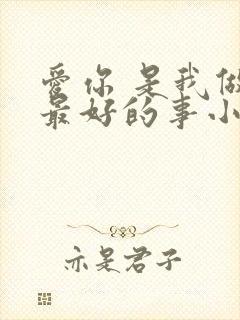 爱你是我做
最好的事小
亦是君子